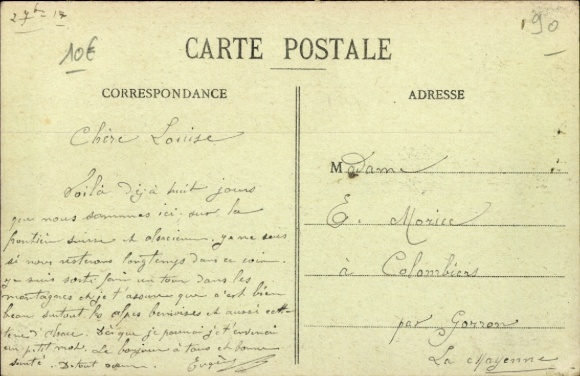 2 7bre 17
10€
90
CARTE POSTALE
CORRESPONDANCE
ADRESSE
Chère Louise
Voilà déjà huit jours
que nous sommes ici sur la
frontière suisse et alsacienne. je ne sais
si nous resterons longtemps dans ce coin.
je suis sorti faire un tour dans les
montagnes et je t'assure que c'est bien
beau surtout les alpes bernoises et aussi cette
terre d'alsace. Dès que je pourrai je t'enverrai
un petit mot. Le bonjour à tous et bonne
santé. De tout cœur. Eugène
Madame
E. Morice
à Colombiers
par Gorron
La Mayenne